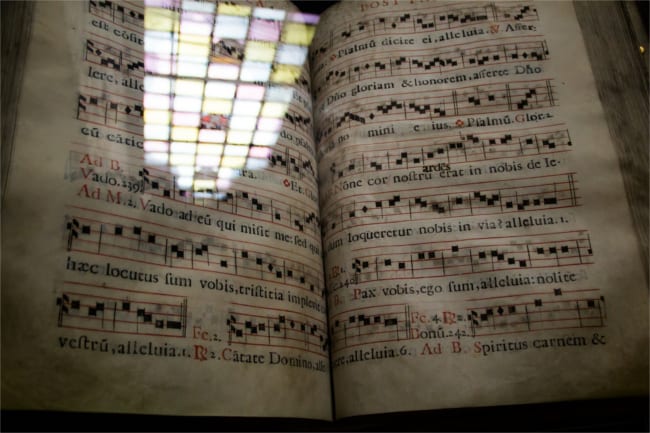 est cõsit
lere, alle
eũ cãtic
do psal
ra. Et
Ad B.
Vado. 239.
Ad M. 2. Vado ad eũ qui misit me: sed qui
hæc locutus sum vobis, tristitia implevit
Fe. 2.
vestrũ, alleluia. 1. ℟ 2. Cãtate Domino, alle
POST
Psalmũ dicite ei, alleluia. ℣ Affer-
Dño gloriam & honorem, afferte Dño
no mini e ius. Psalmũ. Glor. 2.
ardẽs
Nõne cor nostrũ erat in nobis de Ie-
dum loqueretur nobis in via? alleluia. 1.
℟ 1.
B. Pax vobis, ego sum, alleluia: nolite
Fe. 4. ℟ 2.
Bonũ. 242.
ere, alleluia. 6. Ad B. Spiritus carnem &